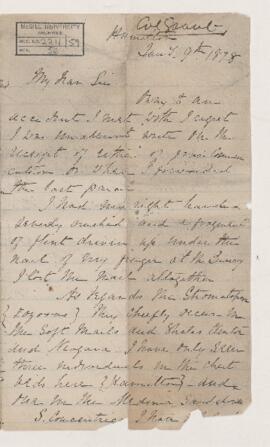 McGILL UNIVERSITY
ARCHIVES
ACC. NO. 2211 59
REF. 
Col Grant
Hamilton
Jany. 9th 1878
My Dear Sir
Owing to an
accident I met with I regret
I was unable to write on the
receipt of either of your Commu
cations or when I forwarded
the last parcel
I had my right hand
severely crushed and a fragment
of flint driven up under the
nail of my finger at the Quarry
I lost the Nail altogether
As regards the Stromatopora
they Chiefly occur in
the Soft Marls and Shales
and Niagara. I have only seen
three individuals in the chert
beds here (Hamilton) and
in the Medina Sandstone
S. Concentrica I have